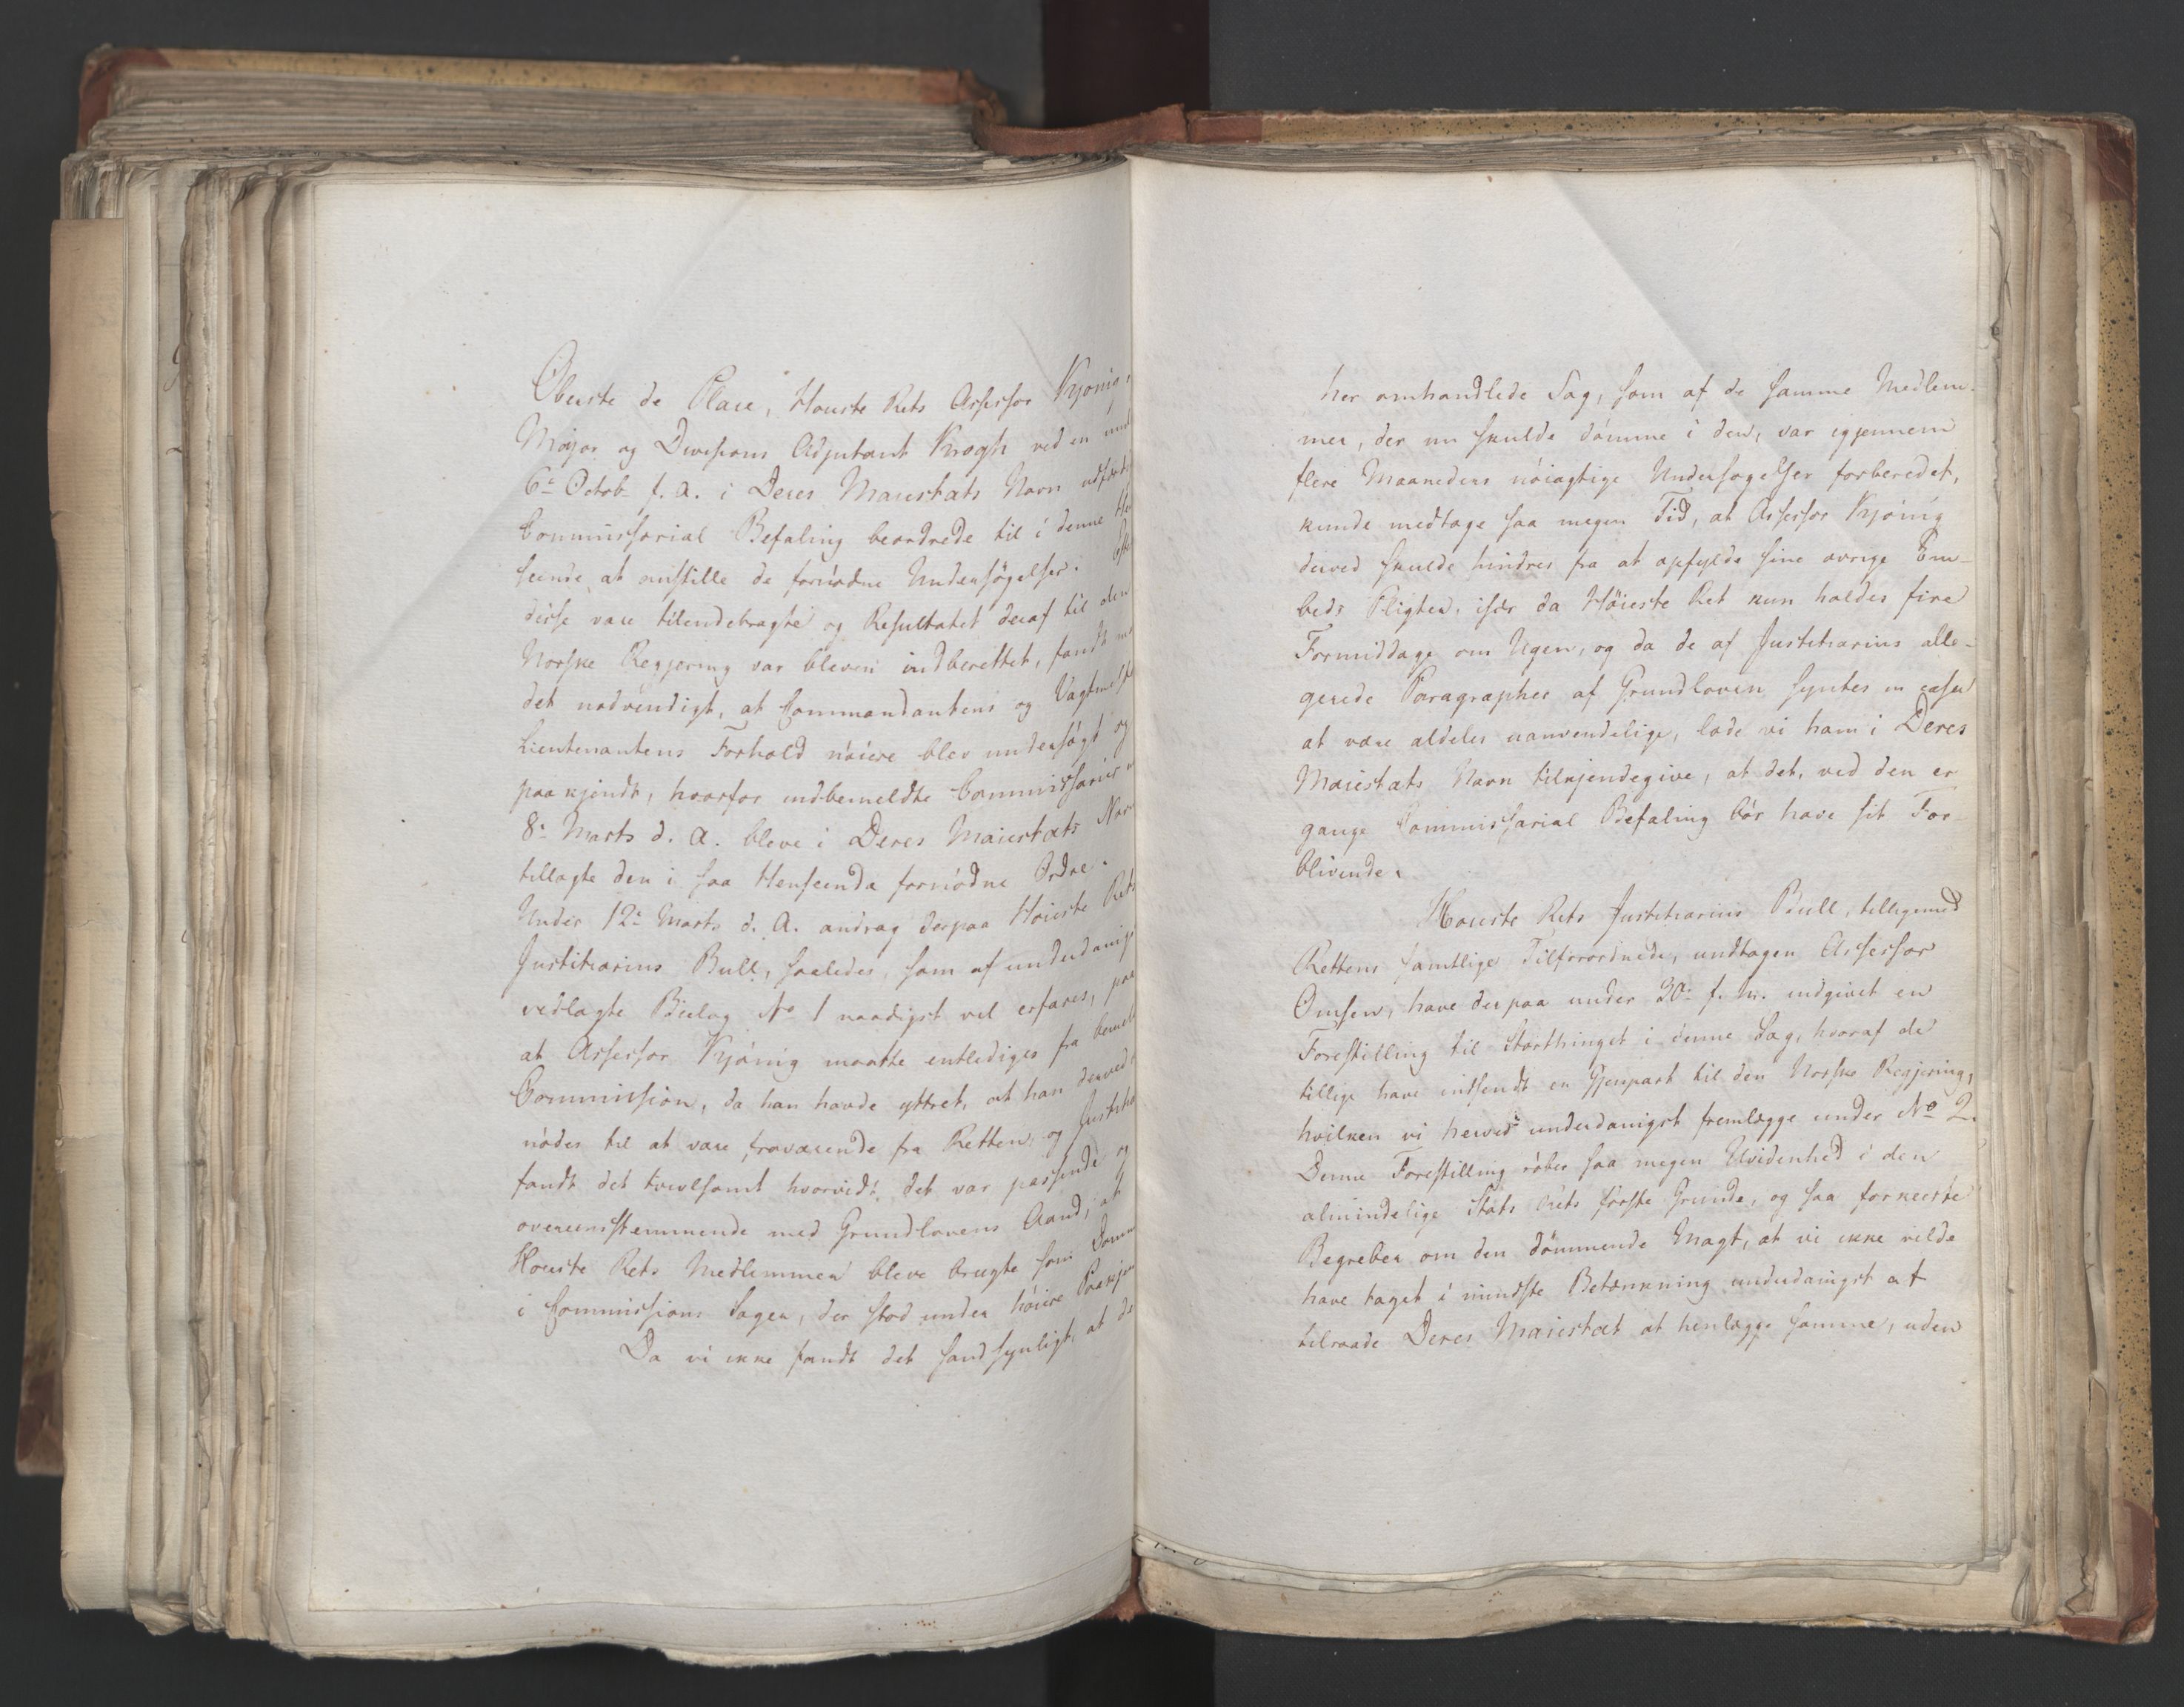 Oberste de Place, Høieste Rets Assessor Kjønig,
Major og Divisions Adjutant Krogh ved en und
6te Octob f. A. i Deres Maiestæts Navn udfærd
Commissarial Befaling beordrede til i denne Hen
seende at anstille de fornødne Undersøgelser. Efter
disse vare tilendebragte og Resultatet deraf til den
Norske Regjering var bleven indberettet, fandt
det nødvendigt, at Commandantens og Vagtmest
Lieutenantens Forhold nøiere blev undersøgt og
paakjendt, hvorfor indbemeldte Commissarier
8de Marts d. A. bleve i Deres Maiestæts Navn
tillagte den i saa Henseende fornødne Ordre.
Under 12te Marts d. A. androg derpaa Høieste Rets
Justitiarius Bull, saaledes, som af underdanigst
vedlagte Bielag No 1 naadigst vil erfares, paa
at Assessor Kjønig maatte entlediges fra bemeld
Commission, da han havde yttret, at han derved
nødes til at være fraværende fra Retten, og Justitia
fandt det tvivlsomt hvorvidt det var passende og
overeensstemmende med Grundlovens Aand, at
Høieste Rets Medlemmer bleve brugte som Domm
i Commissions Sager, der stod under høiere Paakjen
Da vi ikke fandt det sandsynligt, at de
her omhandlede Sag, som af de samme Medlem-
mer, der nu skulde dømme i den, var igjennem
flere Maaneders nøiagtige Undersøgelser forberedet,
kunde medtage saa megen Tid, at Assessor Kjønig
derved skulde hindres fra at opfylde sine øvrige Em-
beds Pligter, især da Høieste Ret kun holdes fire
Formiddage om Ugen, og da de af Justitiarius alle-
gerede Paragrapher af Grundloven syntes in casu
at være aldeles uanvendelige, lode vi ham i Deres
Maiestæts Navn tilkjendegive, at det, ved den er
gangne Commissarial Befaling bør have sit For-
blivende.
Høieste Rets Justitiarius Bull, tilligemed
Rettens samtlige Tilforordnede, undtagen Assessor
Omsen, have derpaa under 30te f. M. indgivet en
Forestilling til Storthinget i denne Sag, hvoraf de
tillige have indsendt en Gjenpart til den Norske Regjering,
hvilken vi herved underdanigst fremlægge under No 2.
Denne Forestilling røber saa megen Uvidenhed i den
almindelige Stats Rets første Grunde, og saa forkeerte
Begreber om den dømmende Magt, at vi ikke vilde
have taget i mindste Betænkning underdanigst at
tilraade Deres Maiestæt at henlægge samme, uden